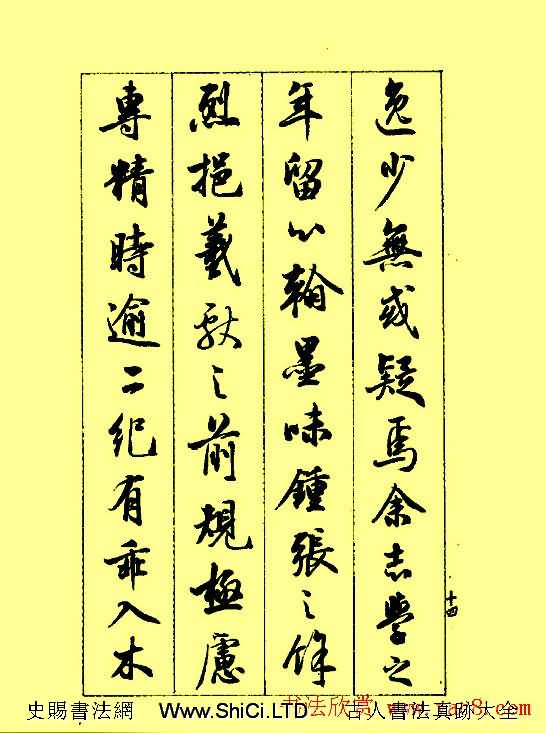 逸少無或疑焉余志學之
年留心翰墨味鍾張之餘
烈挹羲獻之前規極慮
專精時逾二紀有乖入木
十四
史賜書法網 Www.ShiCi.LTD 古人書法真跡大全
书法欣赏